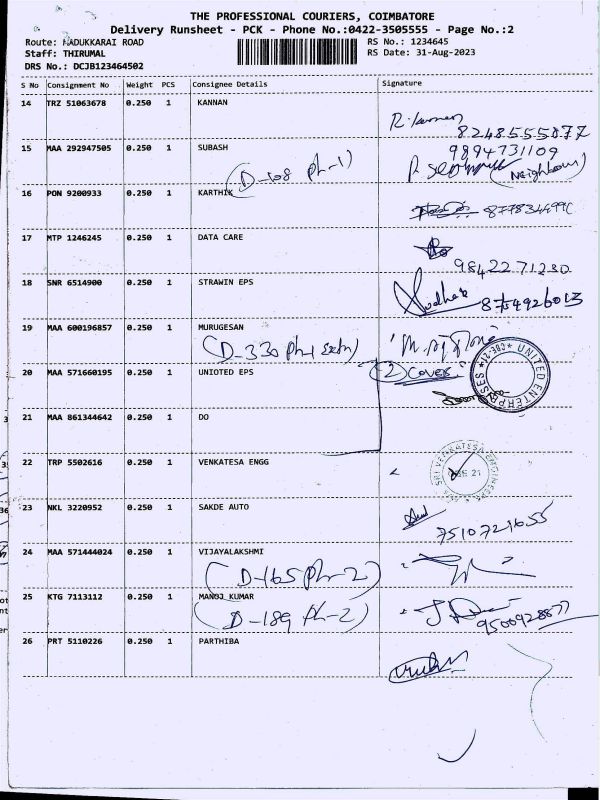 THE PROFESSIONAL COURIERS, COIMBATORE
Delivery Runsheet - PCK - Phone No.:0422-3505555 - Page No.:2
Route: MADUKKARAI ROAD
RS No.: 1234645
Staff: THIRUMAL
RS Date: 31-Aug-2023
DRS No.: DCJB123464502
S No Consignment No Weight PCS Consignee Details Signature
14 TRZ 51063678 0.250 1 KANNAN
R. Kannan
8248555077
15 MAA 292947505 0.250 1 SUBASH
9894731109
(D-108 Ph-1)
(Neighbour)
16 PON 9200933 0.250 1 KARTHIK
17 MTP 1246245 0.250 1 DATA CARE
9842271230
18 SNR 6514900 0.250 1 STRAWIN EPS
8754926013
19 MAA 600196857 0.250 1 MURUGESAN
(D-330 Ph-1
20 MAA 571660195 0.250 1 UNIOTED EPS
(2) Cover
UNITED ENTERPRISES
21 MAA 861344642 0.250 1 DO
22 TRP 5502616 0.250 1 VENKATESA ENGG
SRI VENKATESA ENGINEERS
23 NKL 3220952 0.250 1 SAKDE AUTO
7510721655
24 MAA 571444024 0.250 1 VIJAYALAKSHMI
(D-165 Ph-2)
25 KTG 7113112 0.250 1 MANOJ KUMAR
(D-189 Ph-2)
9500928877
26 PRT 5110226 0.250 1 PARTHIBA